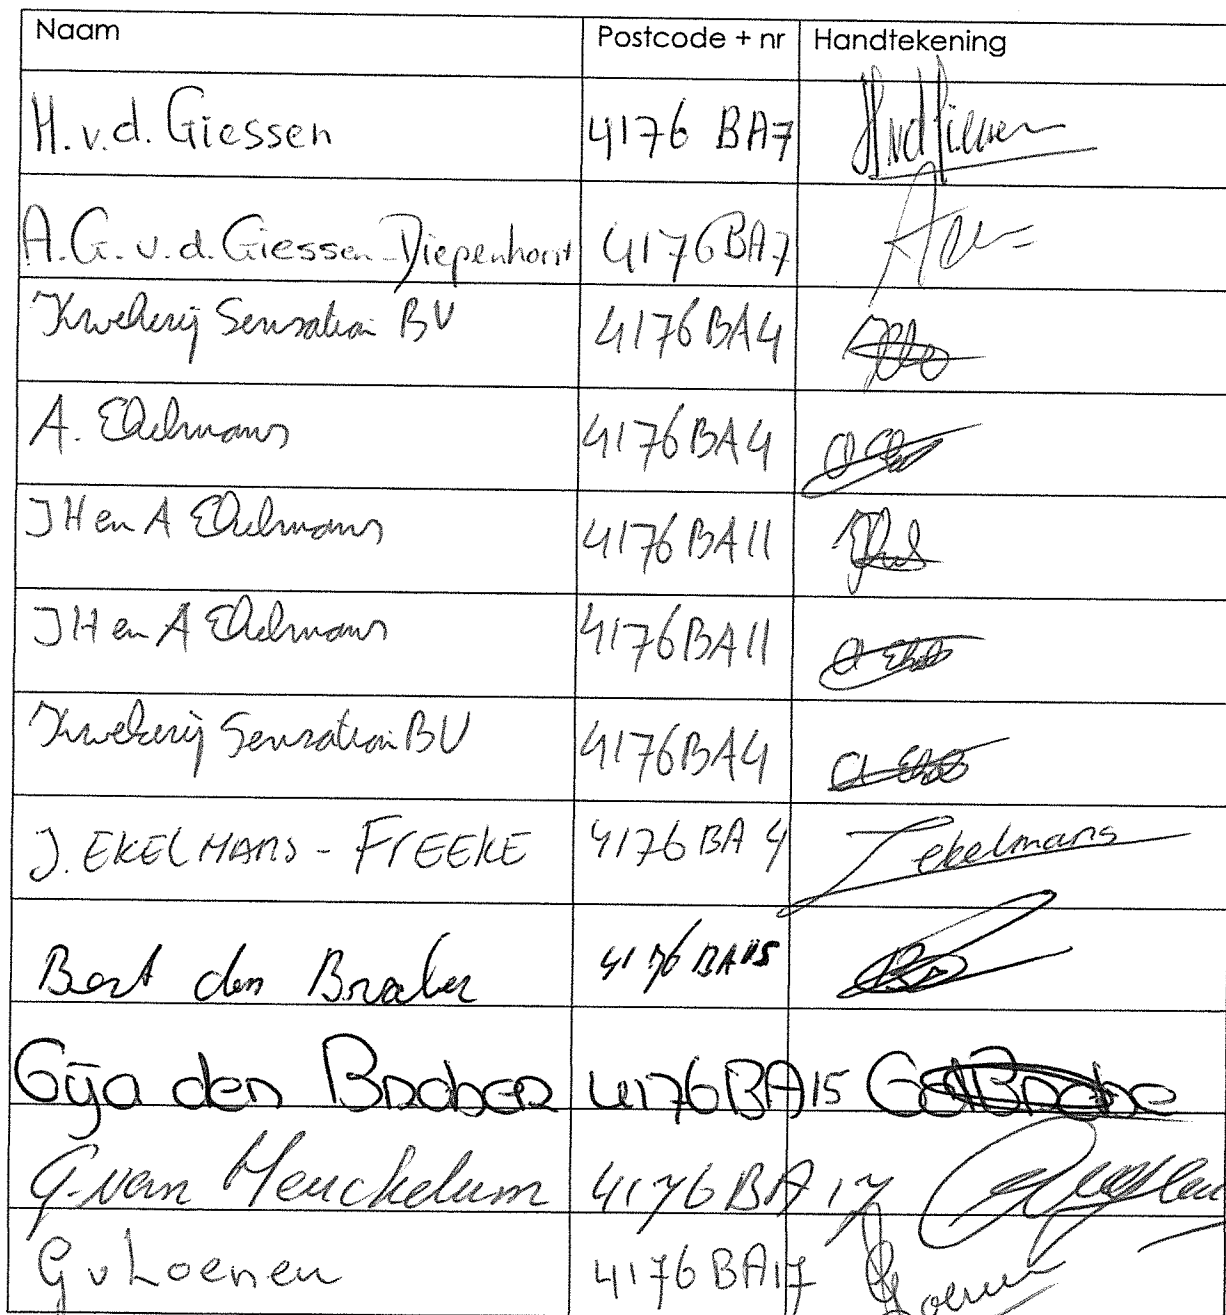 Naam Postcode + nr Handtekening
H. v.d. Giessen 4176 BA7 HvdGiessen
A.G. v.d. Giessen-Diepenhorst 4176BA7
Kwekerij Sensation BV 4176BA4
A. Ekelmans 4176BA4
JH en A Ekelmans 4176BA11
JH en A Ekelmans 4176BA11
Kwekerij Sensation BV 4176BA4
J. EKELMANS - FREEKE 4176 BA 4 J ekelmans
Bert den Braber 4176 BA 15
Gija den Braber 4176BA15 GdBrabe
G. van Heuckelum 4176 BA 17
G v Loenen 4176 BA17 GLoenen